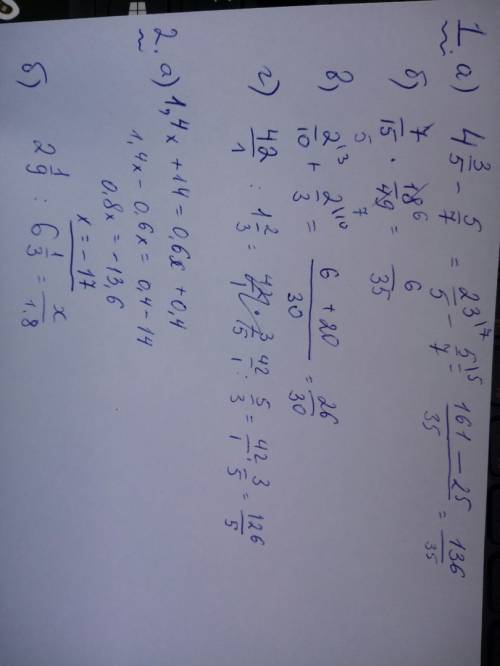 1. а) 4 3/5 - 5/7 = 23/5 \7 - 5/7 \5 = 161 - 25/35 = 136/35
б) 7/15 · 18/49 = 6/35
5 7 6
в) 2/10 \3 + 2/3 \10 = 6 + 20/30 = 26/30
г) 42/1 : 1 2/3 = 42/1 : 5/3 = 42/1 · 3/5 = 126/5
2. а) 1,4x + 14 = 0,6x + 0,4
1,4x - 0,6x = 0,4 - 14
0,8x = -13,6
x = -17
б) 2 1/9 : 6 1/3 = x/1.8